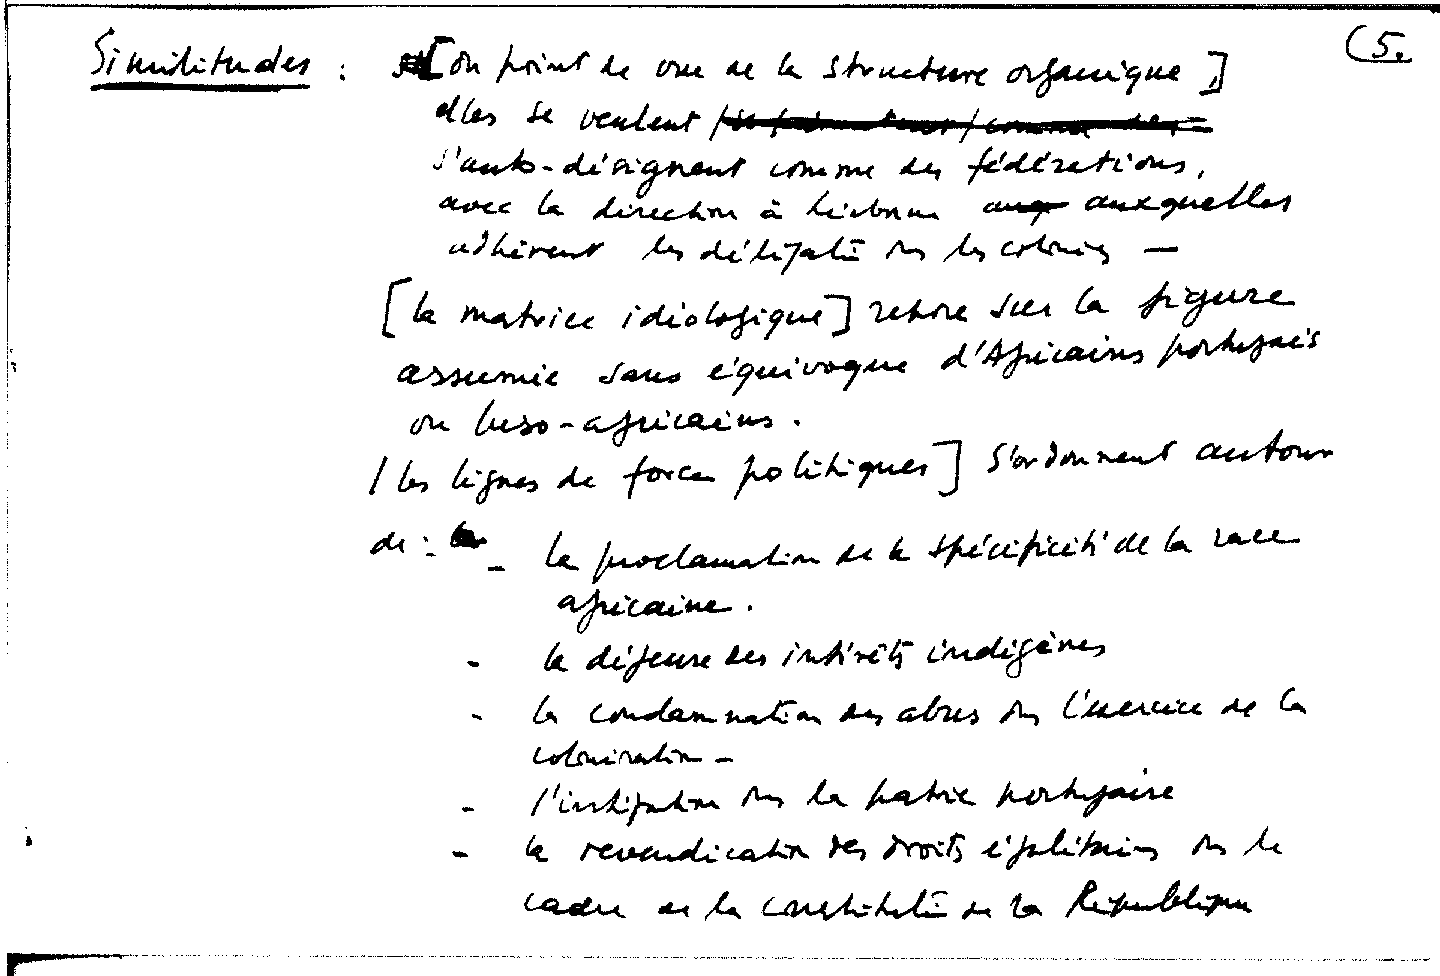 (5.
Similitudes : [du point de vue de la structure organique]
elles se veulent
s'auto-désignent comme des fédérations,
avec la direction à Lisbonne auxquelles
adhèrent les délégatº ds les colonies —
[la matrice idéologique] repose sur la figure
assumée sans équivoque d'Africains portugais
ou luso-africains.
/ les lignes de force politiques] s'ordonnent autour
de :
- la proclamation de la spécificité de la race
africaine.
- la défense des intérêts indigènes
- la condamnation des abus ds l'exercice de la
colonisation -
- l'intégration ds la patrie portugaise
- la revendication des droits égalitaires ds le
cadre de la constitutº de la République